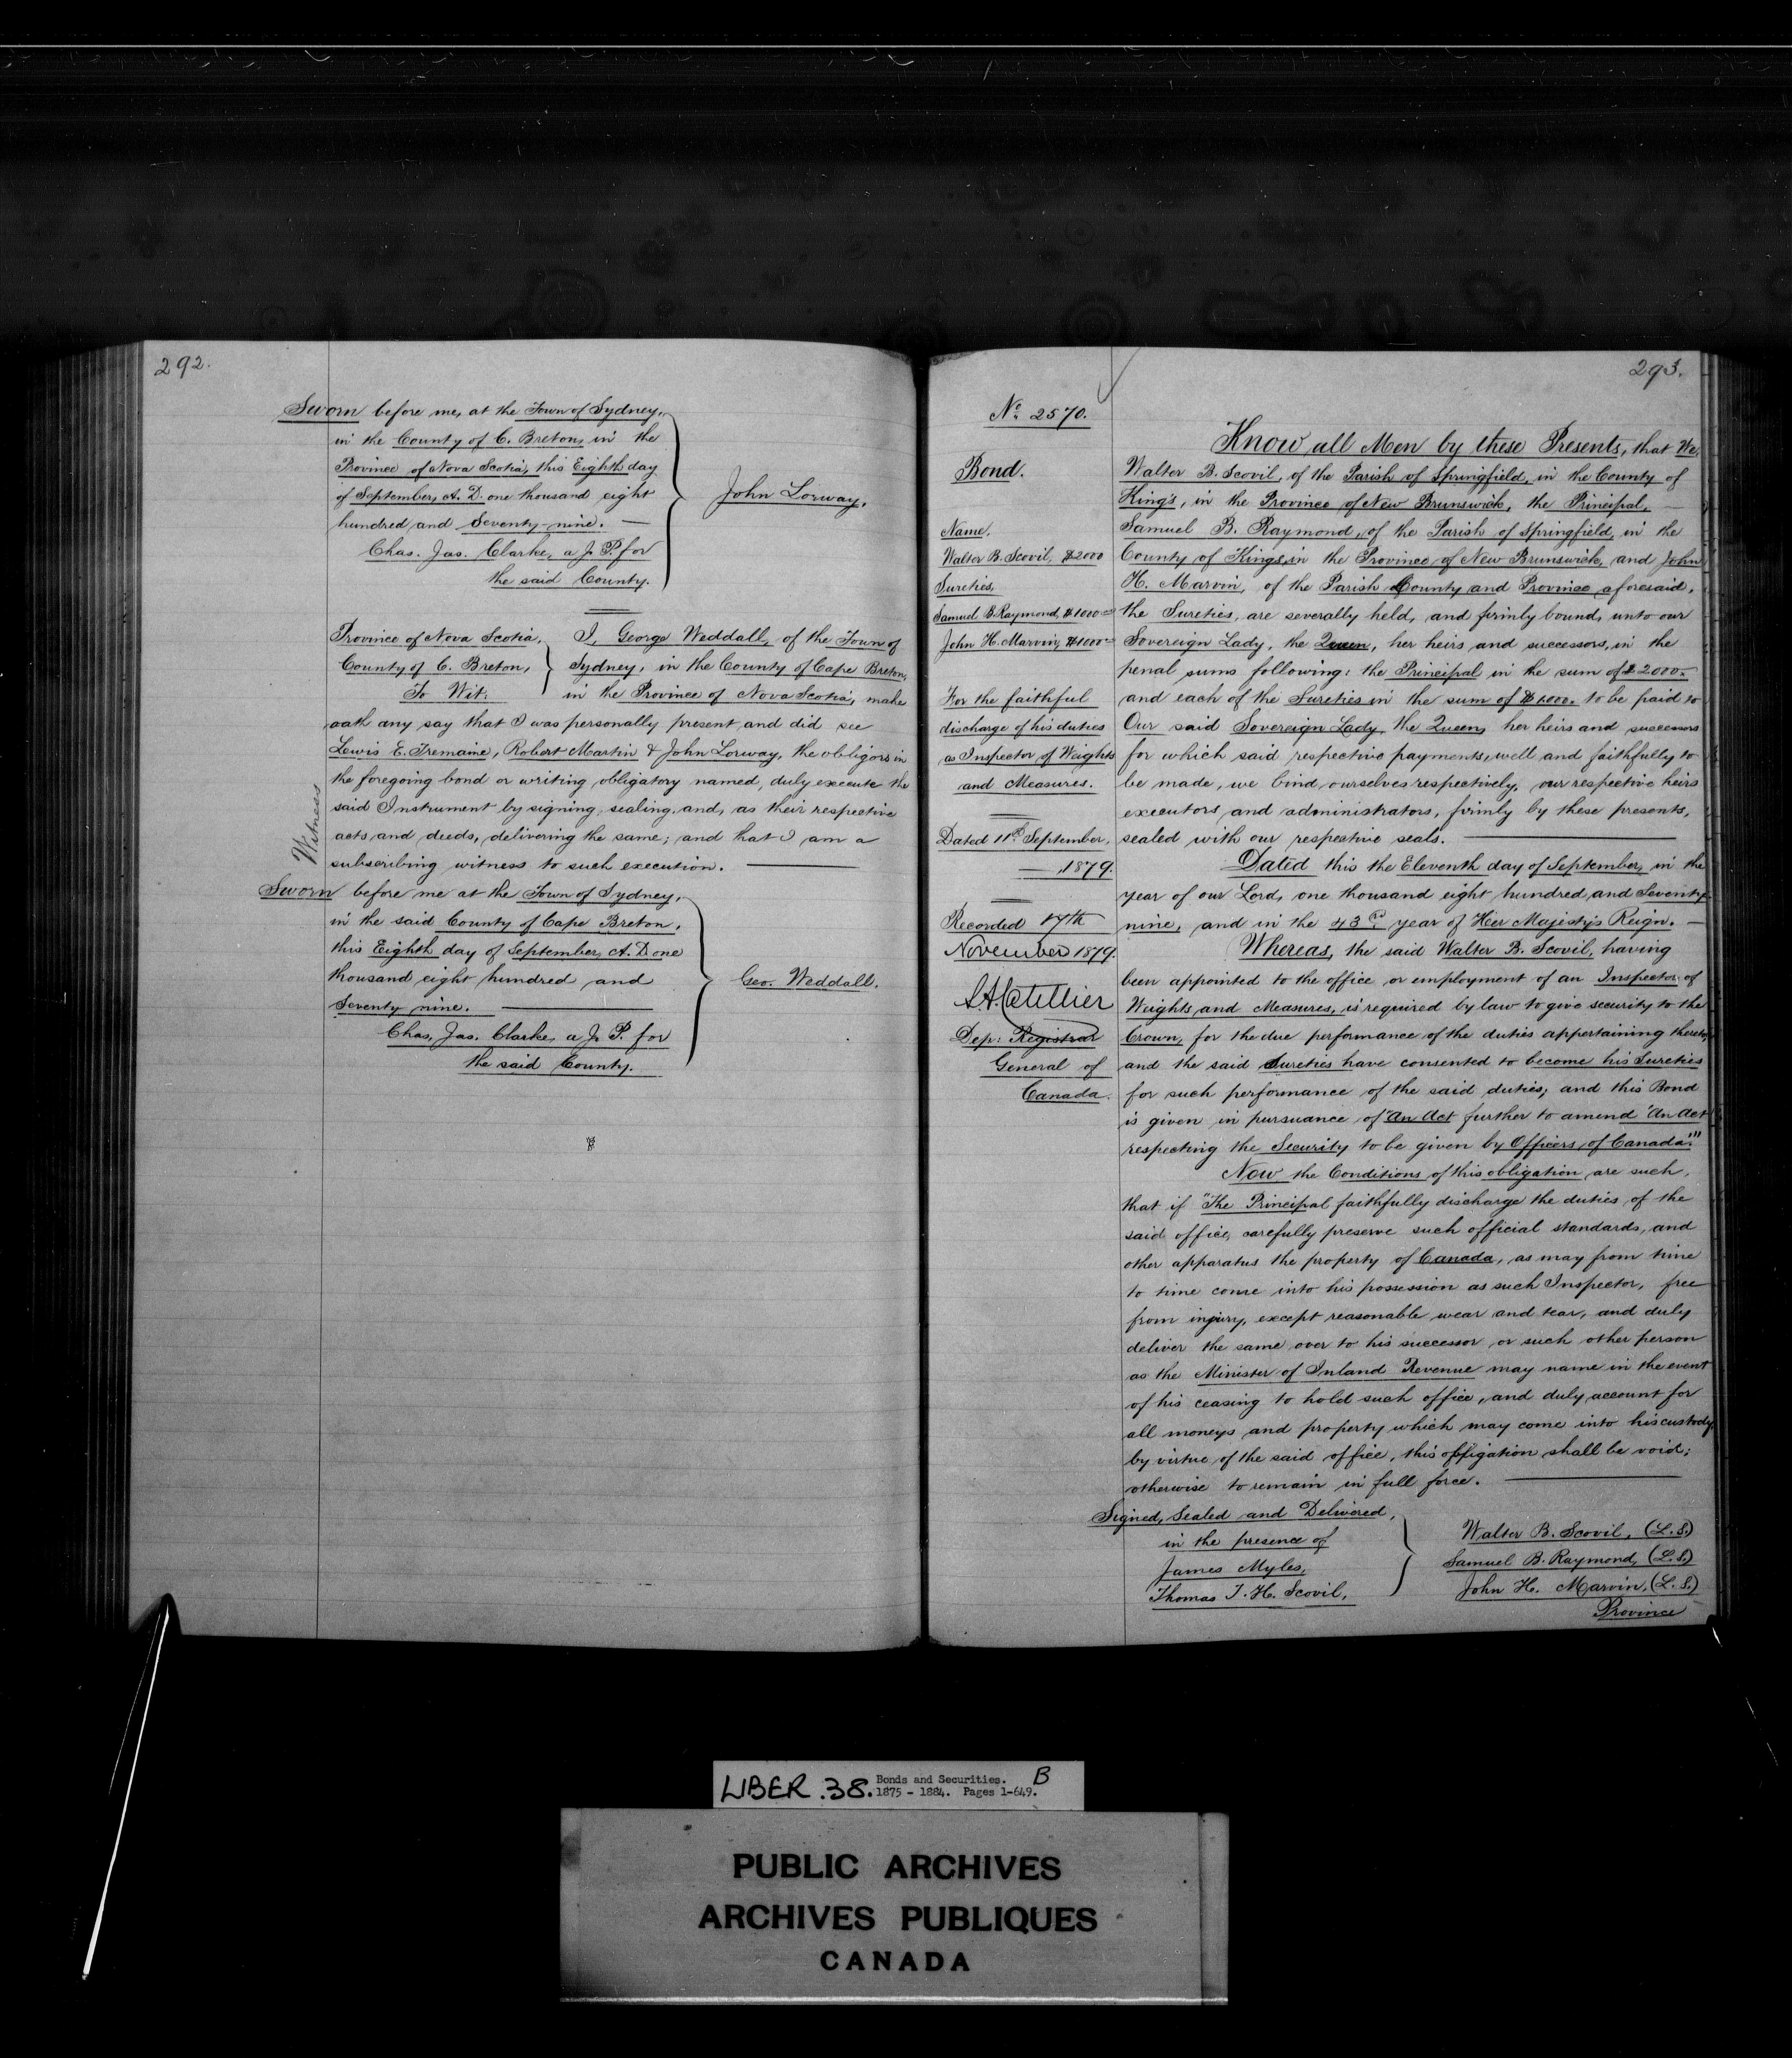 292.
Sworn before me, at the Town of Sydney,
in the County of C. Breton, in the
Province of Nova Scotia, this Eighth day
of September, A. D. one thousand eight
hundred and Seventy-nine. —
Chas. Jas. Clarke, a J. P. for
the said County.
John Lorway.
Province of Nova Scotia,
County of C. Breton,
To Wit:
I, George Weddall, of the Town of
Sydney, in the County of Cape Breton,
in the Province of Nova Scotia, make
oath any say that I was personally present and did see
Lewis E. Tremaine, Robert Martin & John Lorway, the obligors in
the foregoing bond or writing obligatory named, duly execute the
said Instrument by signing, sealing, and, as their respective
acts and deeds, delivering the same; and that I am a
subscribing witness to such execution. —
Witness
Sworn before me at the Town of Sydney,
in the said County of Cape Breton,
this Eighth day of September, A. D one
thousand eight hundred and
Seventy nine. —
Chas, Jas. Clarke, a J. P. for
the said County.
Geo. Weddall.
293.
No. 2570.
Bond.
Name.
Walter B. Scovil, $2000
Sureties,
Samuel B. Raymond, $1000
John H. Marvin, $1000
For the faithful
discharge of his duties
as Inspector of Weights
and Measures.
Dated 11th September,
1879.
Recorded 17th
November 1879.
Dep: Registrar
General of
Canada.
Know all Men by these Presents, that We,
Walter B. Scovil, of the Parish of Springfield, in the County of
King's, in the Province of New Brunswick, the Principal, —
Samuel B. Raymond, of the Parish of Springfield, in the
County of Kings, in the Province of New Brunswick, and John
H. Marvin, of the Parish County and Province aforesaid,
the Sureties, are severally held, and firmly bound, unto our
Sovereign Lady, the Queen, her heirs and successors, in the
penal sums following: the Principal in the sum of $2000.
and each of the Sureties in the sum of $1000. to be paid to
Our said Sovereign Lady, the Queen, her heirs and successors
for which said respective payments, well and faithfully to
be made, we bind ourselves respectively, our respective heirs
executors, and administrators, firmly by these presents,
sealed with our respective seals. —
Dated this the Eleventh day of September, in the
year of our Lord, one thousand eight hundred and Seventy
nine, and in the 43rd, year of Her Majesty's Reign. —
Whereas, the said Walter B. Scovil, having
been appointed to the office or employment of an Inspector of
Weights and Measures, is required by law to give security to the
Crown, for the due performance of the duties appertaining thereto,
and the said Sureties have consented to become his Sureties
for such performance of the said duties; and this Bond
is given in pursuance of "An Act further to amend 'An Act
respecting the Security to be given by Officers of Canada.'"
Now the Conditions of this obligation are such,
that if "The Principal faithfully discharge the duties of the
said office, carefully preserve such official standards, and
other apparatus the property of Canada, as may from time
to time come into his possession as such Inspector, free
from injury, except reasonable wear and tear, and duly
deliver the same over to his successor or such other person
as the Minister of Inland Revenue may name in the event
of his ceasing to hold such office, and duly account for
all moneys and property which may come into his custody
by virtue of the said office, this obligation shall be void;
otherwise to remain in full force. —
Signed, Sealed and Delivered,
in the presence of
James Myles,
Thomas T. H. Scovil,
Walter B. Scovil, (L. S.)
Samuel B. Raymond, (L. S.)
John H. Marvin, (L. S.)
Province
LIBER .38. Bonds and Securities. B
1875 - 1884. Pages 1-649.
PUBLIC ARCHIVES
ARCHIVES PUBLIQUES
CANADA